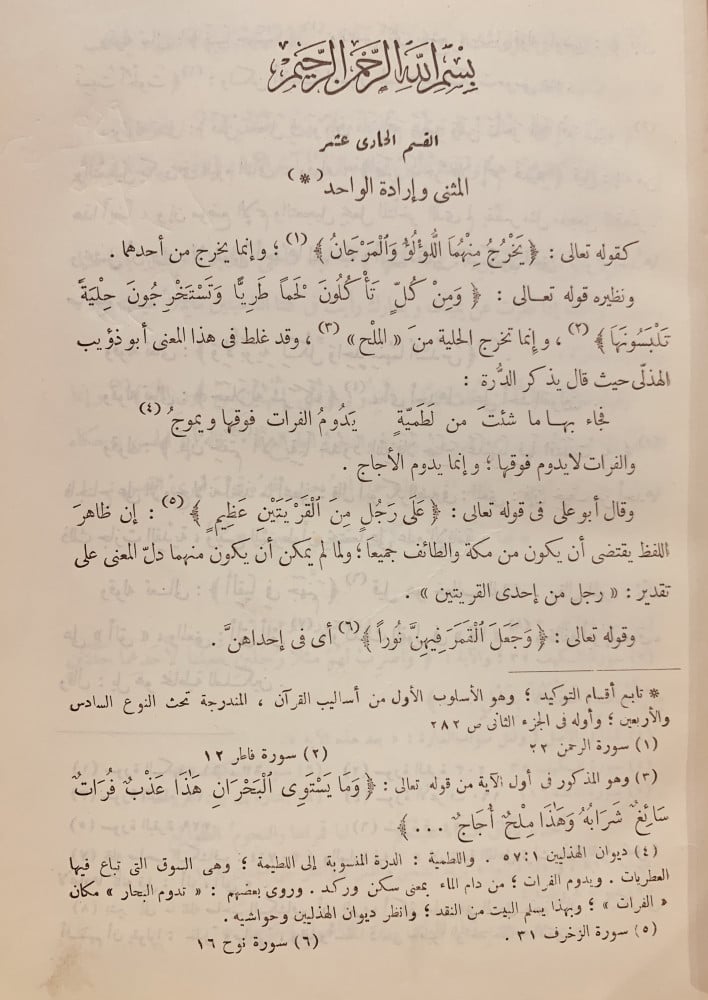 بِسْمِ اللَّهِ الرَّحْمَنِ الرَّحِيمِ
القسم الحادى عشر
المثنى وإرادة الواحد (*)
كقوله تعالى : ﴿ يَخْرُجُ مِنْهُمَا اللُّؤْلُؤُ وَالْمَرْجَانُ ﴾ (١) ؛ وإنما يخرج من أحدهما .
ونظيره قوله تعـالى : ﴿ وَمِنْ كُلٍّ تَأْكُلُونَ لَحْمًا طَرِيًّا وَتَسْتَخْرِجُونَ حِلْيَةً
تَلْبَسُونَهَا ﴾ (٢) ، وإنما تخرج الحلية منَ « الملْح » (٣) ، وقد غلط فى هذا المعنى أبو ذؤيب
الهذلّى حيث قال يذكر الدُّرة :
فجاء بهـا ما شئتَ من لَطَمِيّةٍ يَدُومُ الفرات فوقها ويموجُ (٤)
والفرات لا يدوم فوقها ؛ وإنما يدوم الأجاج .
وقال أبو على فى قوله تعالى : ﴿ عَلَى رَجُلٍ مِنَ الْقَرْيَتَيْنِ عَظِيمٍ ﴾ (٥) : إن ظاهرَ
اللفظ يقتضى أن يكون من مكة والطائف جميعا ؛ ولما لم يمكن أن يكون منهما دلّ المعنى على
تقدير : « رجل من إحدى القريتين » .
وقوله تعالى : ﴿ وَجَعَلَ الْقَمَرَ فِيهِنَّ نُوراً ﴾ (٦) أى فى إحداهنَّ .
* تابع أقسام التوكيد ؛ وهو الأسلوب الأول من أساليب القرآن ، المندرجة تحت النوع السادس
والأربعين ؛ وأوله فى الجزء الثانى ص ٢٨٢
(١) سورة الرحمن ٢٢ (٢) سورة فاطر ١٢
(٣) وهو المذكور فى أول الآية من قوله تعالى : ﴿ وَمَا يَسْتَوِى الْبَحْرَانِ هَٰذَا عَذْبٌ فُرَاتٌ
سَائِغٌ شَرَابُهُ وَهَٰذَا مِلْحٌ أُجَاجٌ ... ﴾
(٤) ديوان الهذليين ١ : ٥٧ . واللطمية : الدرة المنسوبة إلى اللطيمة ؛ وهى السوق التى تباع فيها
العطريات . ويدوم الفرات ؛ من دام الماء بمعنى سكن وركد . وروى بعضهم : « تدوم البحار » مكان
« الفرات » ؛ وبهذا يسلم البيت من النقد ؛ وانظر ديوان الهذليين وحواشيه .
(٥) سورة الزخرف ٣١ . (٦) سورة نوح ١٦